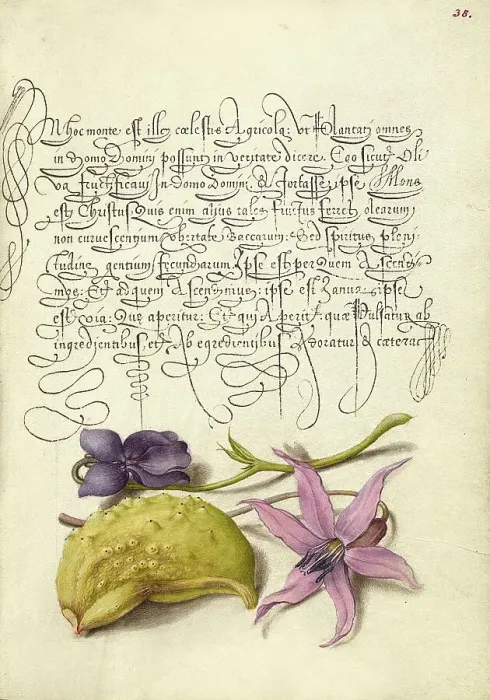 38.
In hoc monte est ille cœlestis Agricola: Vt Plantati omnes
in Domo Dominj possunt in veritate dicere. Ego sicut Oli
va fructificauj In domo Dominj. & fortasse ipse Mons
est Christus Quis enim alius tales fructus ferret olearum
non curuescentium Vbertate Baccarum: Sed spiritus pleni
tudine gentium fecundarum. Ipse est per Quem Ascendi
mus: Et ad quem Ascendimus: ipse est Ianua: ipse
est via: Que aperitur: Et quj Aperit: quæ Pulsatur ab
ingredientibus, et Ab egredientibus Adoratur & cætera